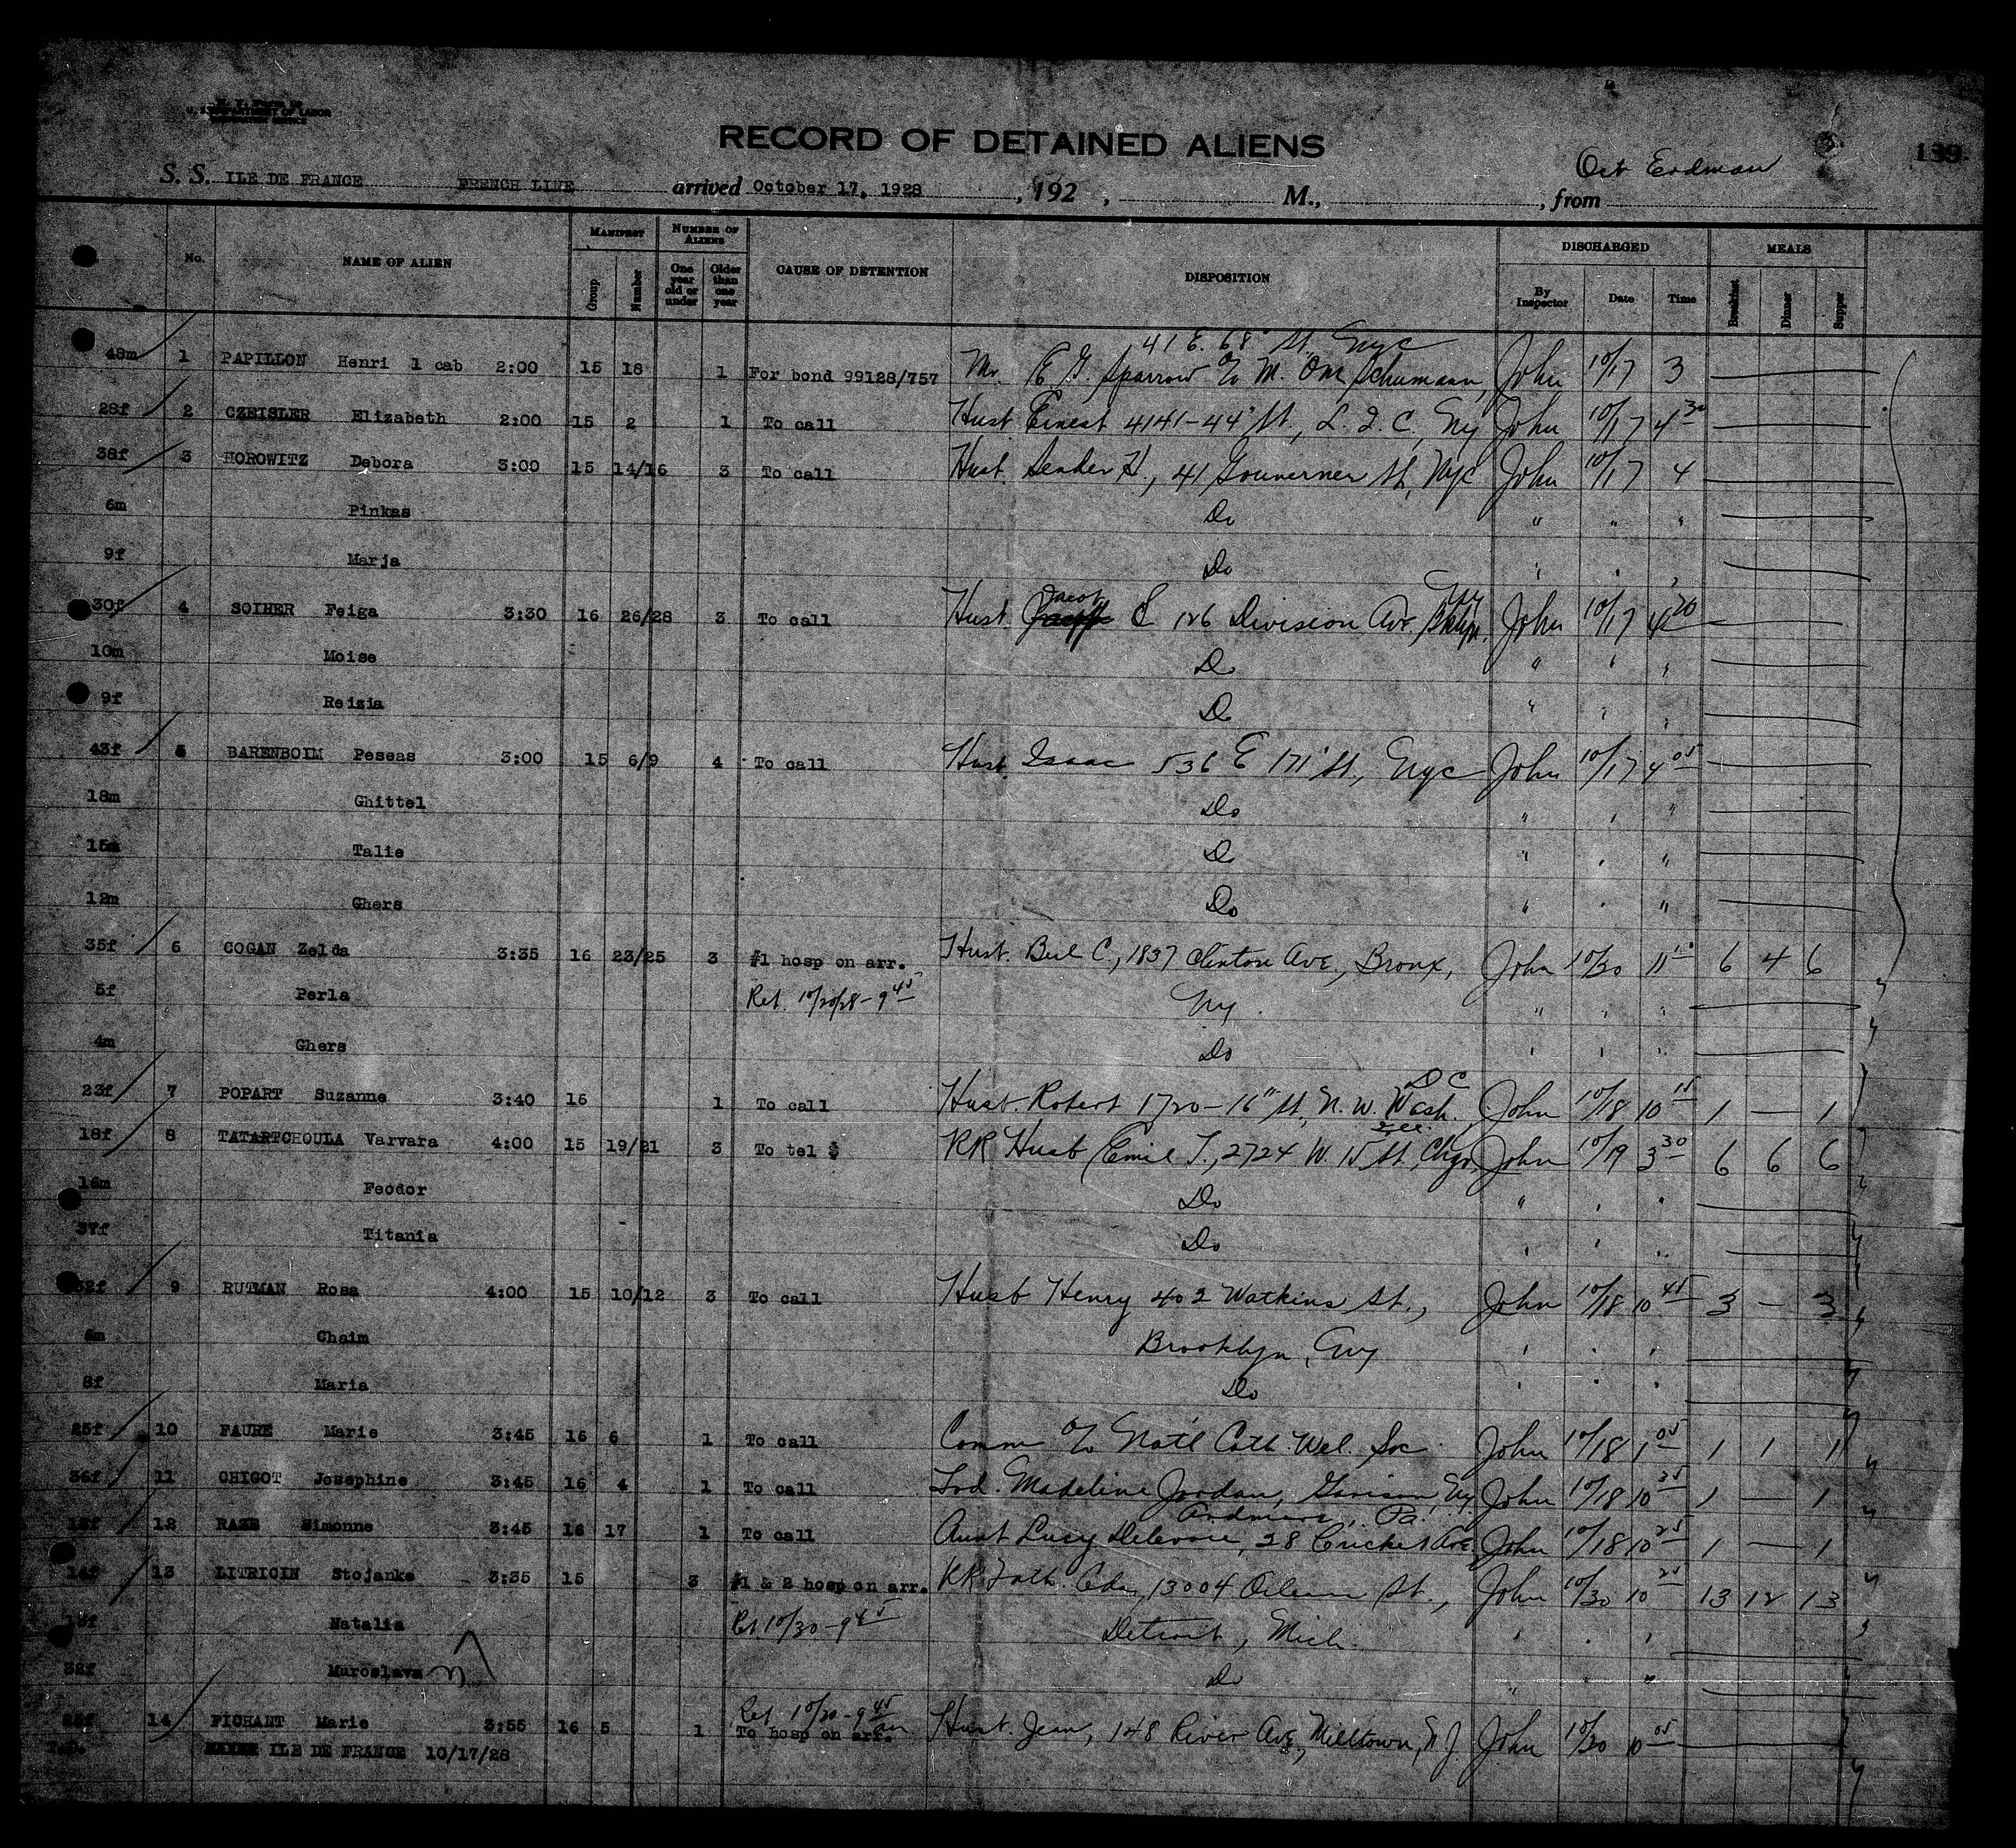 U. S. DEPARTMENT OF LABOR
RECORD OF DETAINED ALIENS
139
S. S. ILE DE FRANCE FRENCH LINE arrived October 17, 1928, 192 , M., , from
No. NAME OF ALIEN MANIFEST Group Number NUMBER OF ALIENS One year old or under Older than one year CAUSE OF DETENTION DISPOSITION DISCHARGED By Inspector Date Time MEALS Breakfast Dinner Supper
41 E. 68" St. Nyc
48m 1 PAPILLON Henri 1 cab 2:00 15 18 1 For bond 99128/757 Mr. Sparrow c/o M. Schumann, John 10/17 3
28f 2 CZEISLER Elizabeth 2:00 15 2 1 To call Husb Ernest 4141-44" St., L. I. C., Ny John 10/17 4 30
38f 3 HOROWITZ Debora 3:00 15 14/16 3 To call Husb. Sender H., 41 Gouverner St, Nyc John 10/17 4
6m Pinkas Do " " "
9f Marja Do " " "
30f 4 SOIHER Feiga 3:30 16 26/28 3 To call Husb. Jacob S 126 Division Ave, Bklyn. Ny John 10/17 4 20
10m Moise Do " " "
9f Reizia Do " " "
43f 5 BARENBOIM Peseas 3:00 15 6/9 4 To call Husb. Isaac 536 E 171" St., Nyc John 10/17 4 05
18m Ghittel Do " " "
15m Talie Do " " "
12m Ghers Do " " "
35f 6 COGAN Zelda 3:35 16 23/25 3 #1 hosp on arr. Husb. Bul C., 1837 Clinton Ave., Bronx, John 10/20 11 6 4 6
5f Perla Ret. 10/20/28-9 45 Ny. " " "
4m Ghers Do " " "
23f 7 POPART Suzanne 3:40 16 1 To call Husb. Robert 1720-16" St, N. W. Wash. D C John 10/18 10 15 1 — 1
18f 8 TATARTCHOULA Varvara 4:00 15 19/21 3 To tel $ RR Husb Emil T., 2724 W. 15 St., Chgo, Ill. John 10/19 3 30 6 6 6
16m Feodor Do " " "
37f Titania Do " " "
32f 9 RUTMAN Rosa 4:00 15 10/12 3 To call Husb Henry 402 Watkins St., John 10/18 10 45 3 — 3
Chaim Brooklyn, Ny " " "
8f Maria Do " " "
25f 10 FAURE Marie 3:45 16 6 1 To call Comm c/o Nat'l Cath. Wel. Soc John 10/18 1 05 1 1 1
36f 11 CHIGOT Josephine 3:45 16 4 1 To call Frd. Madeline Jordan, Garrison, Ny John 10/18 10 35 1 — 1
Ardmore, Pa.
12 RAZE Simonne 3:45 16 17 1 To call Aunt Lucy 28 Cricket Ave. John 10/18 10 25 1 — 1
13 LITRICIN Stojanke 3:35 15 3 #1 & 2 hosp on arr. RR Fath. 13004 Orleans St., John 10/30 10 25 13 12 13
Natalia Ret 10/30-9 45 Detroit, Mich. " " "
32f Muroslava Do " " "
Ret 10/20-9 45 am
14 FICHANT Marie 3:55 16 5 1 To hosp on arr. Husb. Jean, 148 River Ave., Milltown, N J. John 10/20 10 05
ILE DE FRANCE 10/17/28